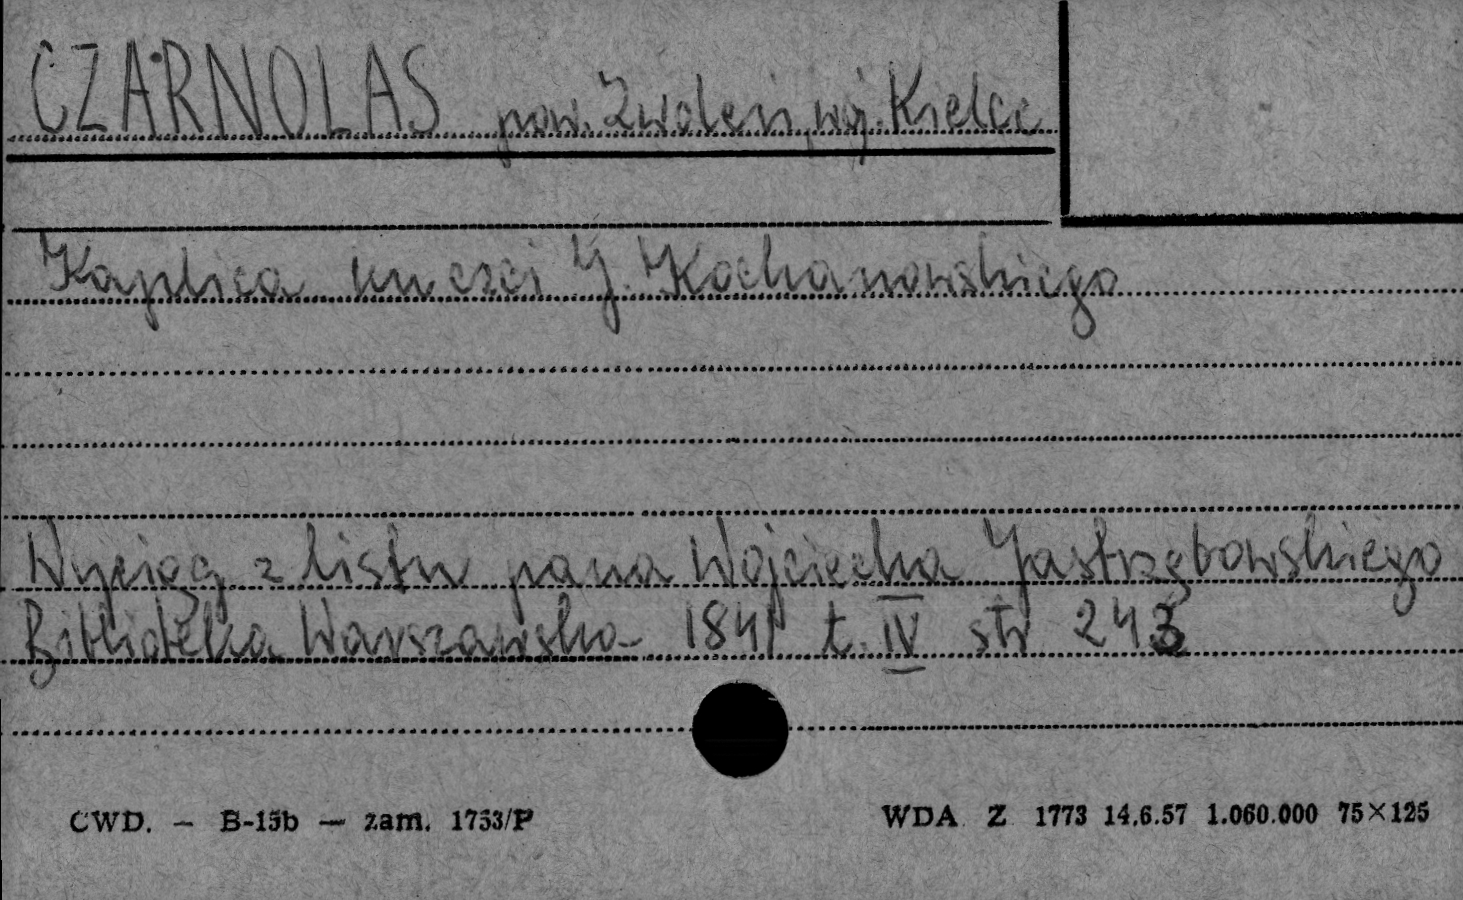 CZARNOLAS pow. Zwoleń, woj. Kielce
Kaplica ku czci J. Kochanowskiego
Wyciąg z listu pana Wojciecha Jastrzębowskiego
Biblioteka Warszawska 1841 t. IV str 243
CWD. — B-15b — zam. 1753/P
WDA Z 1773 14.6.57 1.060.000 75×125